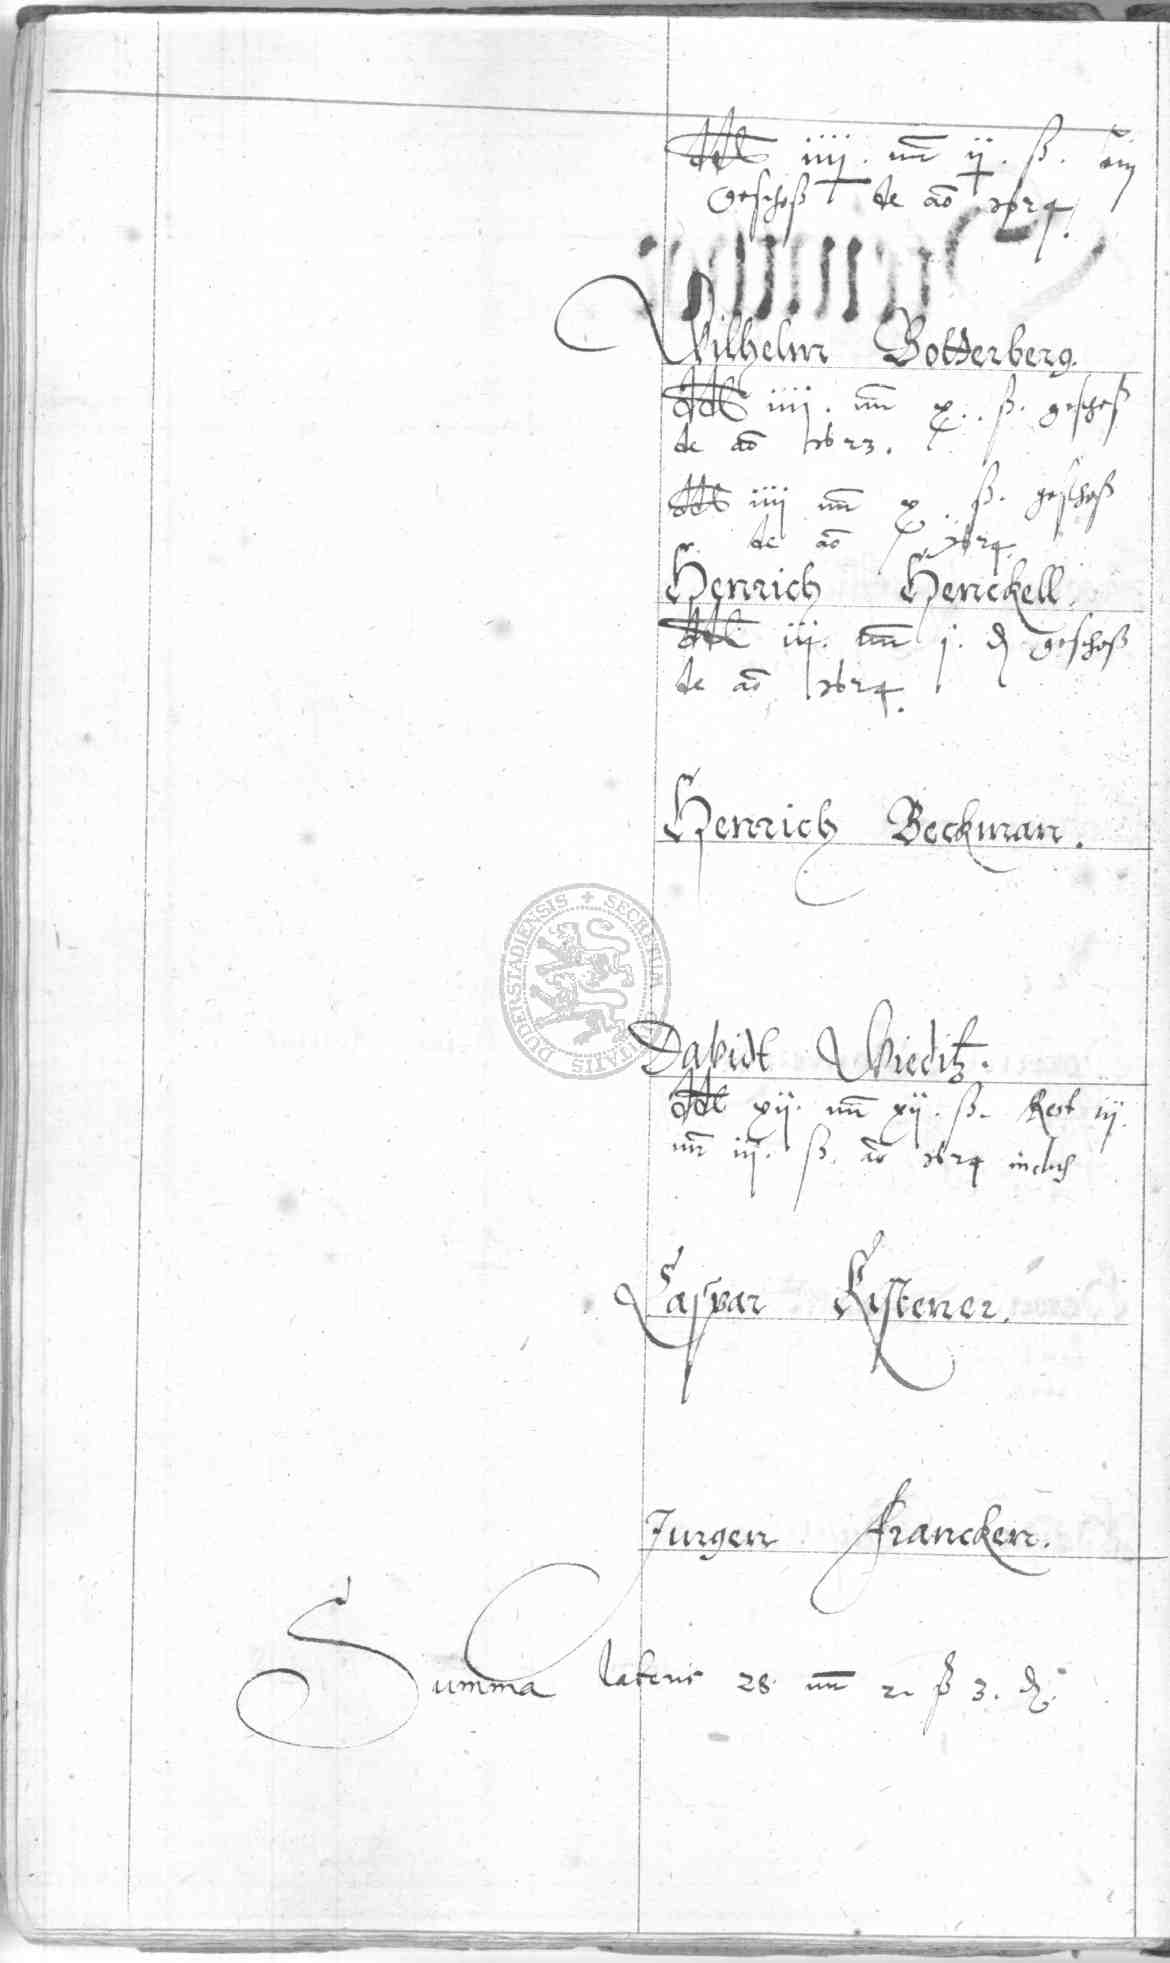 ddt iiij. mr ij. ß.
geschoß de ao 1624.
Wilhelm Botterberg.
ddt iiij. mr x. ß. geschoß
de ao 1623.
ddt iiij mr x. ß. geschoß
de ao 1624.
Henrich Henckell.
ddt iij. mr j. ₰ geschoß
de ao 1624.
Henrich Beckman.
DUDERSTADIENSIS + SECRETUM CIVITATIS
Davidt Drieditz.
ddt xij. mr xij. ß. Rest iij.
mr iij. ß. ao 1624
Caspar Kistener.
Jurgen Francken.
Summa lateris 28 mr 2 ß 3. ₰.